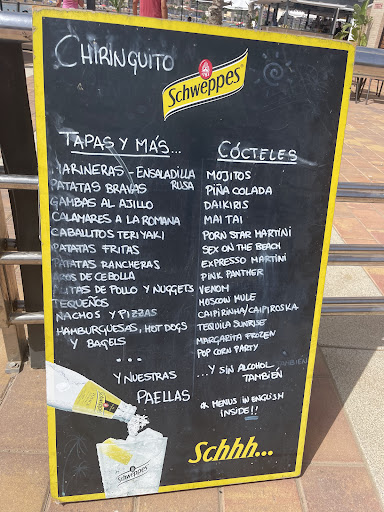 CHIRINGUITO
Schweppes
TAPAS Y MÁS...
MARINERAS - ENSALADILLA RUSA
PATATAS BRAVAS
GAMBAS AL AJILLO
CALAMARES A LA ROMANA
CABALLITOS TERIYAKI
PATATAS FRITAS
PATATAS RANCHERAS
AROS DE CEBOLLA
ALITAS DE POLLO Y NUGGETS
TEQUEÑOS
NACHOS Y PIZZAS
HAMBURGUESAS, HOT DOGS
Y BAGELS
...
Y NUESTRAS
PAELLAS
CÓCTELES
MOJITOS
PIÑA COLADA
DAIKIRIS
MAI TAI
PORN STAR MARTINI
SEX ON THE BEACH
EXPRESSO MARTINI
PINK PANTHER
VENOM
MOSCOW MULE
CAIPIRINHA/CAIPIROSKA
TEQUILA SUNRISE
MARGARITA FROZEN
POP CORN PARTY
...Y SIN ALCOHOL
TAMBIÉN
MENUS IN ENGLISH
INSIDE!!
Schhh...
Schweppes